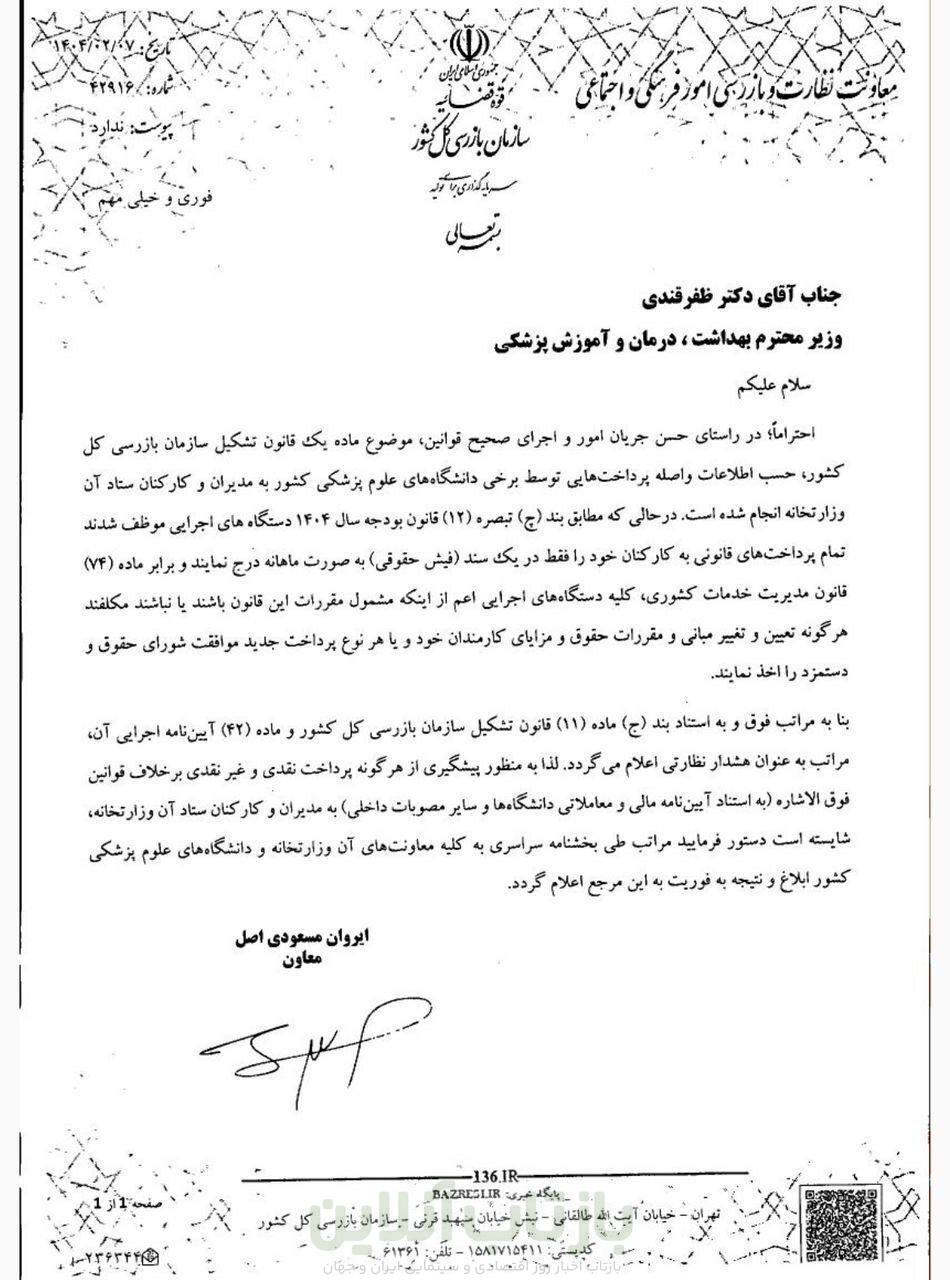 معاونت نظارت و بازرسی امور فرهنگی و اجتماعی
جمهوری اسلامی ایران
قوه قضائیه
سازمان بازرسی کل کشور
سرمایه‌گذاری برای تولید
بسمه تعالی
تاریخ: ۱۴۰۴/۰۲/۰۷
شماره: ۴۲۹۱۶
پیوست: ندارد
فوری و خیلی مهم
جناب آقای دکتر ظفرقندی
وزیر محترم بهداشت، درمان و آموزش پزشکی
سلام علیکم
احتراماً؛ در راستای حسن جریان امور و اجرای صحیح قوانین، موضوع ماده یک قانون تشکیل سازمان بازرسی کل
کشور، حسب اطلاعات واصله پرداخت‌هایی توسط برخی دانشگاه‌های علوم پزشکی کشور به مدیران و کارکنان ستاد آن
وزارتخانه انجام شده است. درحالی که مطابق بند (چ) تبصره (۱۲) قانون بودجه سال ۱۴۰۴ دستگاه های اجرایی موظف شدند
تمام پرداخت‌های قانونی به کارکنان خود را فقط در یک سند (فیش حقوقی) به صورت ماهانه درج نمایند و برابر ماده (۷۴)
قانون مدیریت خدمات کشوری، کلیه دستگاه‌های اجرایی اعم از اینکه مشمول مقررات این قانون باشند یا نباشند مکلفند
هرگونه تعیین و تغییر مبانی و مقررات حقوق و مزایای کارمندان خود و یا هر نوع پرداخت جدید موافقت شورای حقوق و
دستمزد را اخذ نمایند.
بنا به مراتب فوق و به استناد بند (ج) ماده (۱۱) قانون تشکیل سازمان بازرسی کل کشور و ماده (۴۲) آیین‌نامه اجرایی آن،
مراتب به عنوان هشدار نظارتی اعلام می‌گردد. لذا به منظور پیشگیری از هرگونه پرداخت نقدی و غیر نقدی برخلاف قوانین
فوق الاشاره (به استناد آیین‌نامه مالی و معاملاتی دانشگاه‌ها و سایر مصوبات داخلی) به مدیران و کارکنان ستاد آن وزارتخانه،
شایسته است دستور فرمایید مراتب طی بخشنامه سراسری به کلیه معاونت‌های آن وزارتخانه و دانشگاه‌های علوم پزشکی
کشور ابلاغ و نتیجه به فوریت به این مرجع اعلام گردد.
ایروان مسعودی اصل
معاون
136.IR
پایگاه خبری: BAZRESI.IR
تهران - خیابان آیت الله طالقانی - نبش خیابان سپهبد قرنی - سازمان بازرسی کل کشور
کدپستی: ۱۵۸۱۷۱۵۴۱۱ - تلفن: ۶۱۳۶۱
صفحه 1 از 1
بازتاب آنلاین
بازتاب اخبار روز اقتصادی و سینمایی ایران و جهان